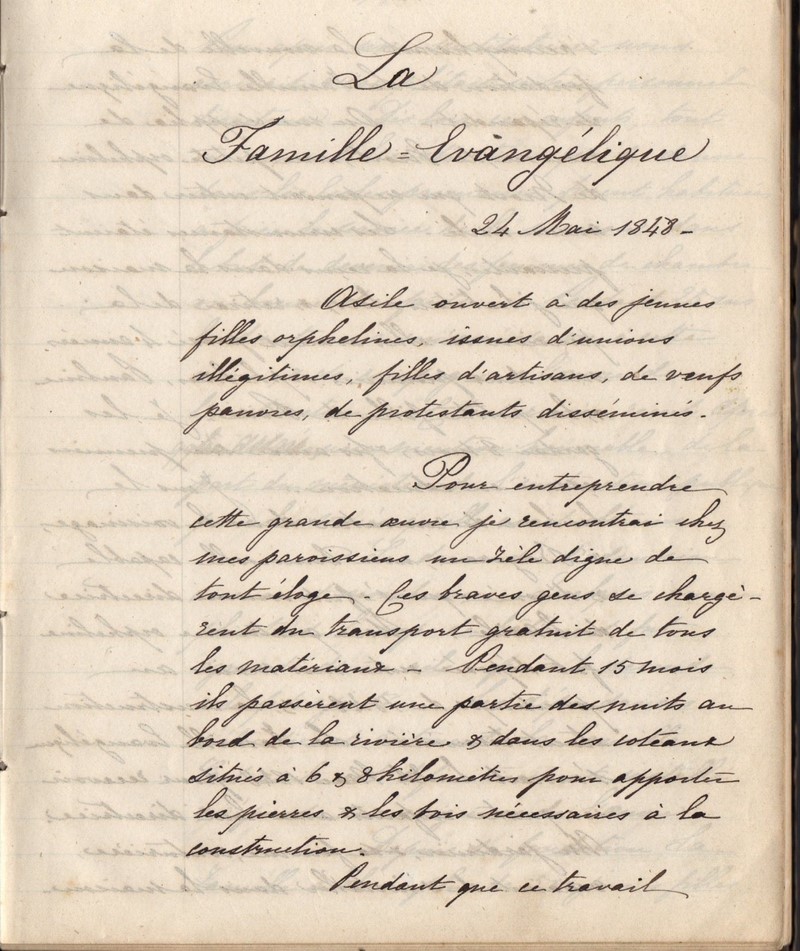 La
Famille = Evangélique
24 Mai 1848 -
Asile ouvert à des jeunes
filles orphelines, issues d'unions
illégitimes, filles d'artisans, de veufs
pauvres, de protestants disséminés.
Pour entreprendre
cette grande œuvre je rencontrai chez
mes paroissiens un zèle digne de
tout éloge - Ces braves gens se chargè-
rent du transport gratuit de tous
les matériaux - Pendant 15 mois
ils passèrent une partie des nuits au
bord de la rivière & dans les coteaux
situés à 6 & 8 kilomètres pour apporter
les pierres & les bois nécessaires à la
construction.
Pendant que ce travail